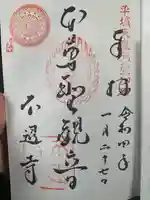 奉拝
令和四年
一月二十七日
本尊聖観音
不退寺